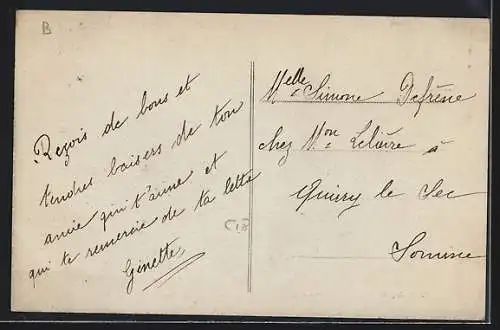 B
Reçois de bons et
tendres baisers de ton
amie qui t'aime et
qui te remercie de ta lettre
Ginette
Melle Simone Defrène
chez Mon Lelièvre à
Quiry le Sec
Somme